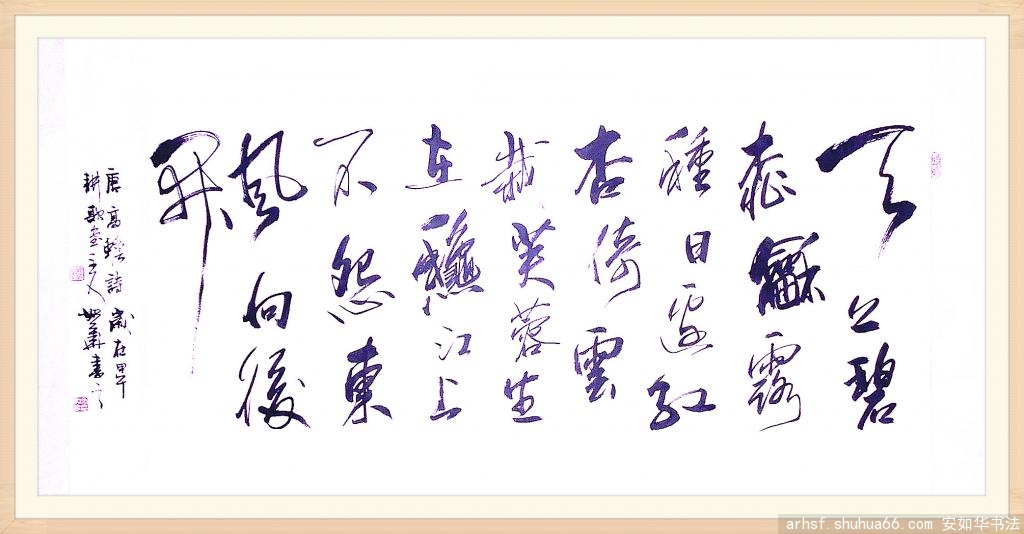 天上碧
桃龢露
種日邊紅
杏倚雲
栽芙蓉生
在龝江上
不怨東
風向後
開
唐高蟾詩 歲在甲午
耕歌堂主人 如華書
arhsf.shuhua66.com 安如华书法